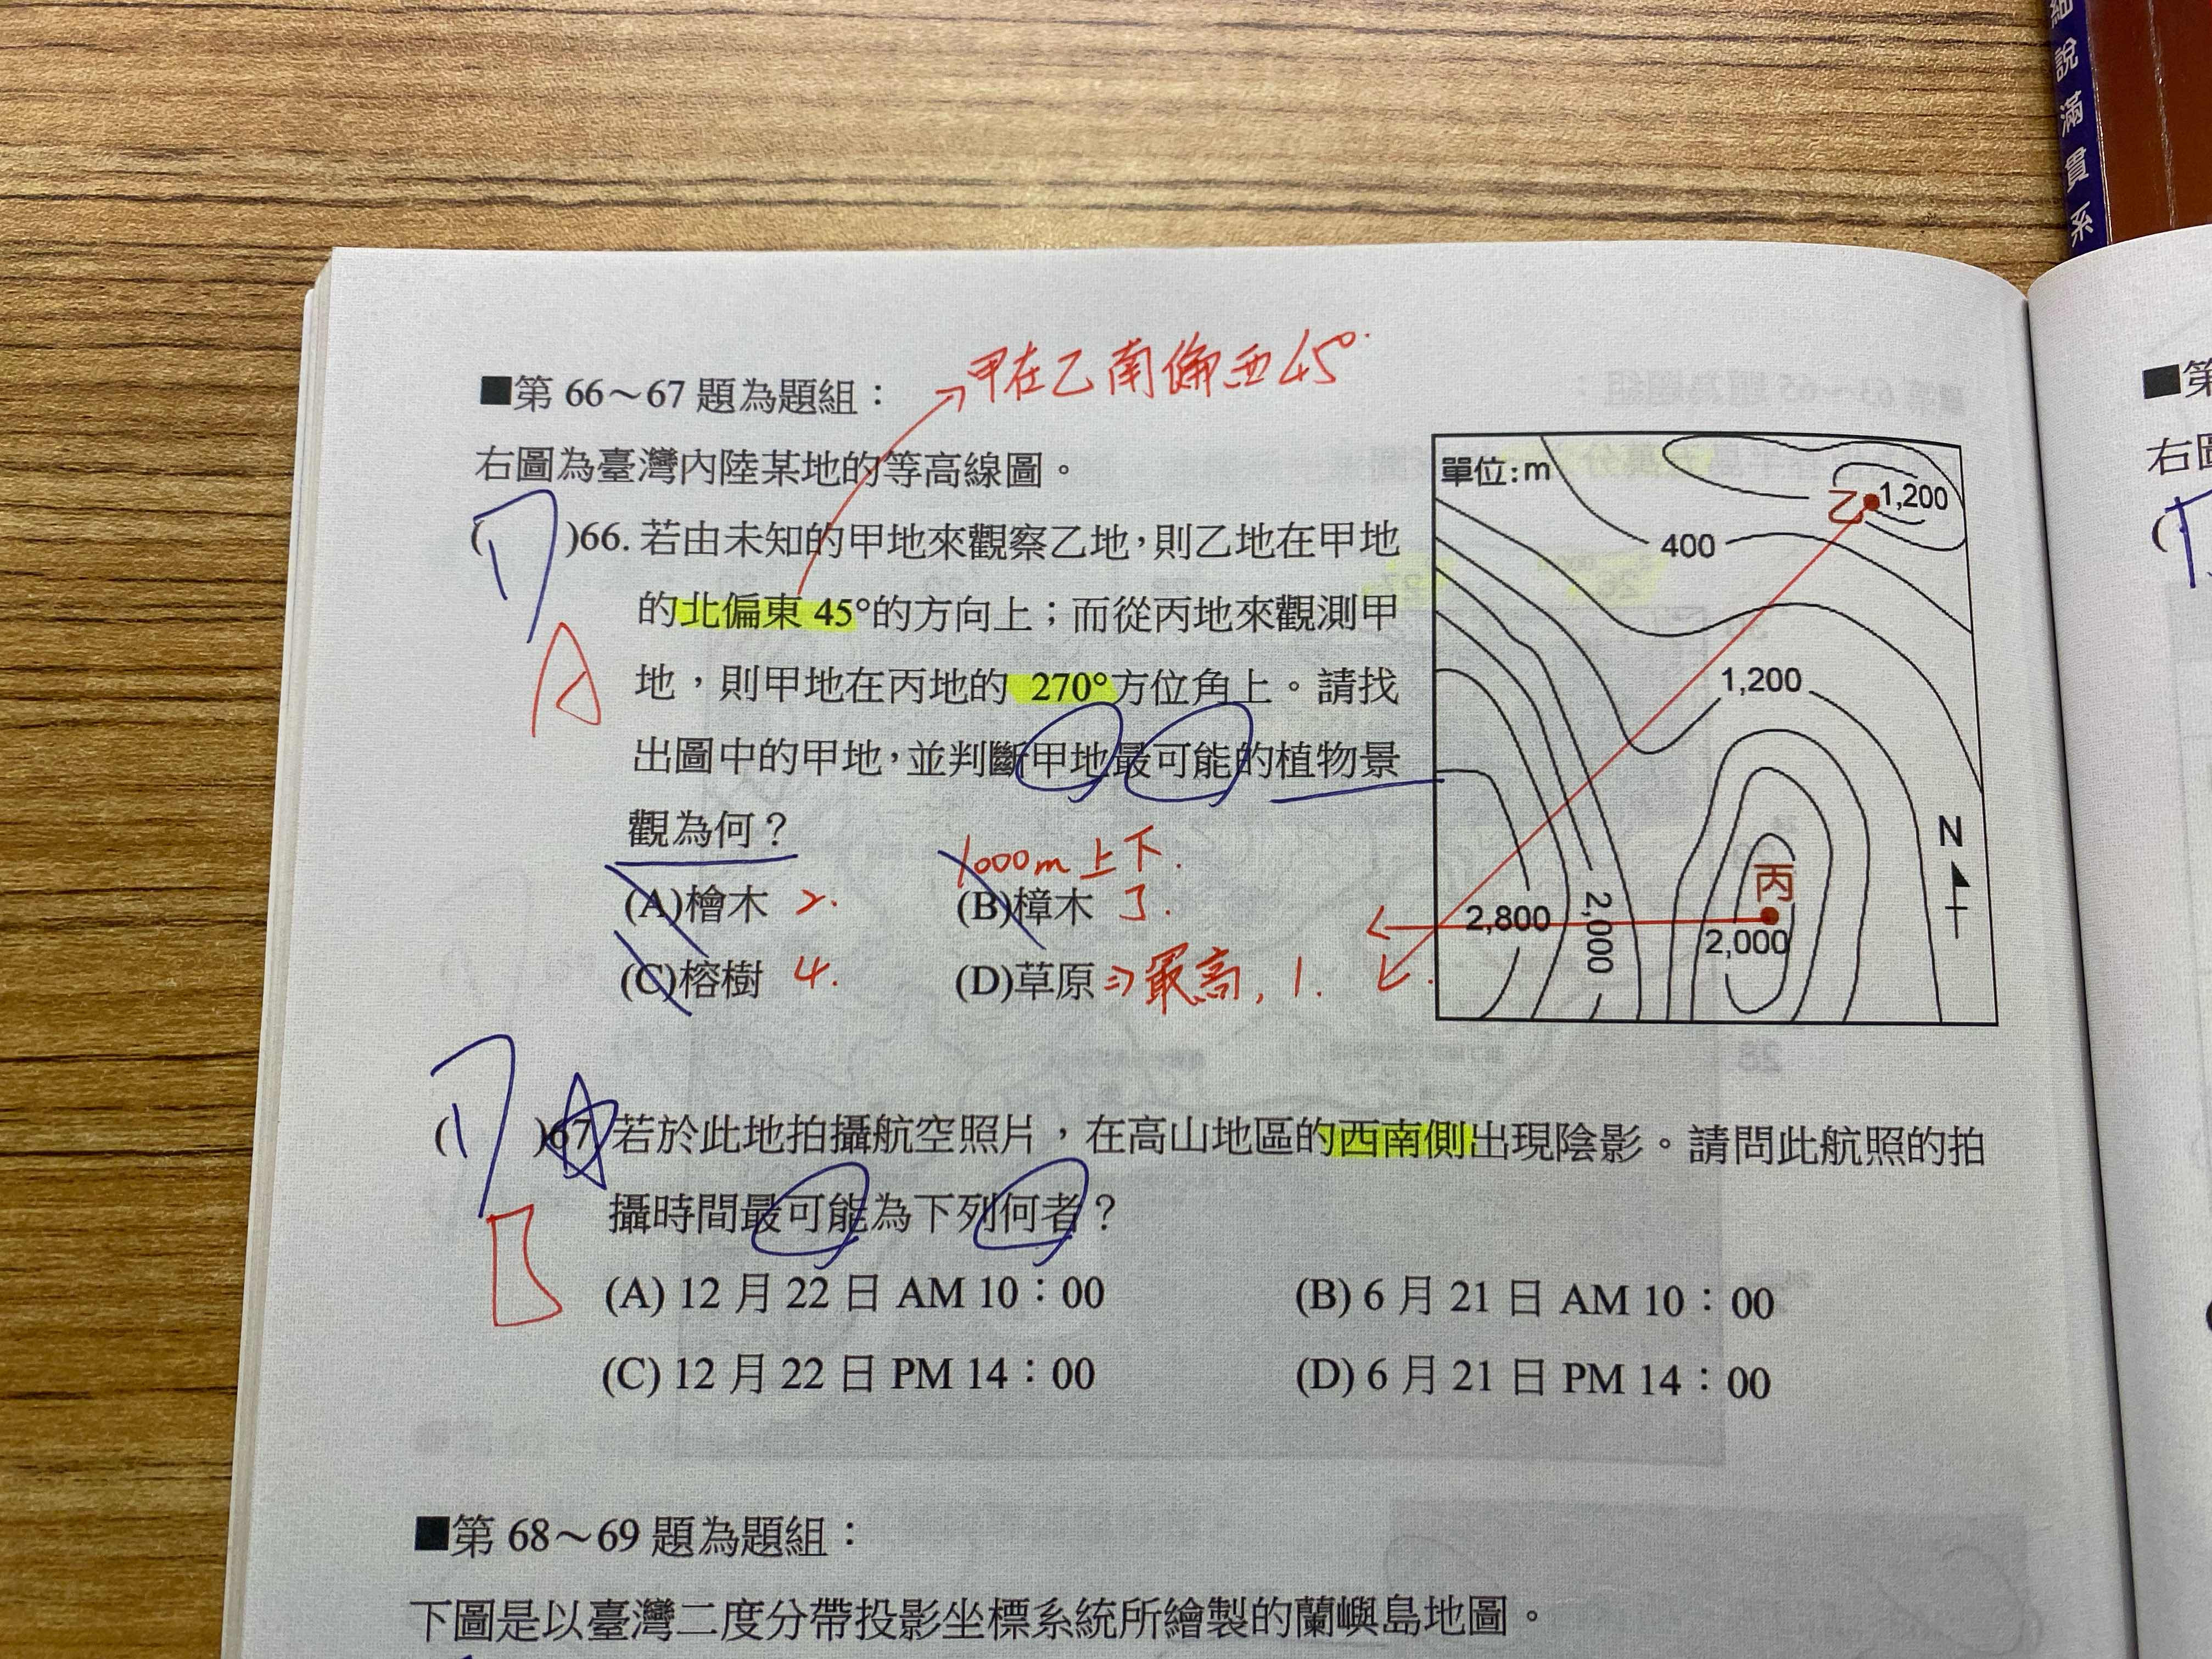 細說滿貫系
甲在乙南偏西45°
■第 66～67 題為題組：
右圖為臺灣內陸某地的等高線圖。
( D )66. 若由未知的甲地來觀察乙地，則乙地在甲地
的北偏東 45°的方向上；而從丙地來觀測甲
地，則甲地在丙地的 270°方位角上。請找
出圖中的甲地，並判斷甲地最可能的植物景
觀為何？
A
1000m上下.
(A)檜木 2. (B)樟木 3.
(C)榕樹 4. (D)草原⇒最高, 1.
單位:m
乙 1,200
400
1,200
N
丙
2,800 2,000 2,000
( D )67. 若於此地拍攝航空照片，在高山地區的西南側出現陰影。請問此航照的拍
攝時間最可能為下列何者？
B
(A) 12 月 22 日 AM 10：00 (B) 6 月 21 日 AM 10：00
(C) 12 月 22 日 PM 14：00 (D) 6 月 21 日 PM 14：00
■第 68～69 題為題組：
下圖是以臺灣二度分帶投影坐標系統所繪製的蘭嶼島地圖。
■第
右圖
(